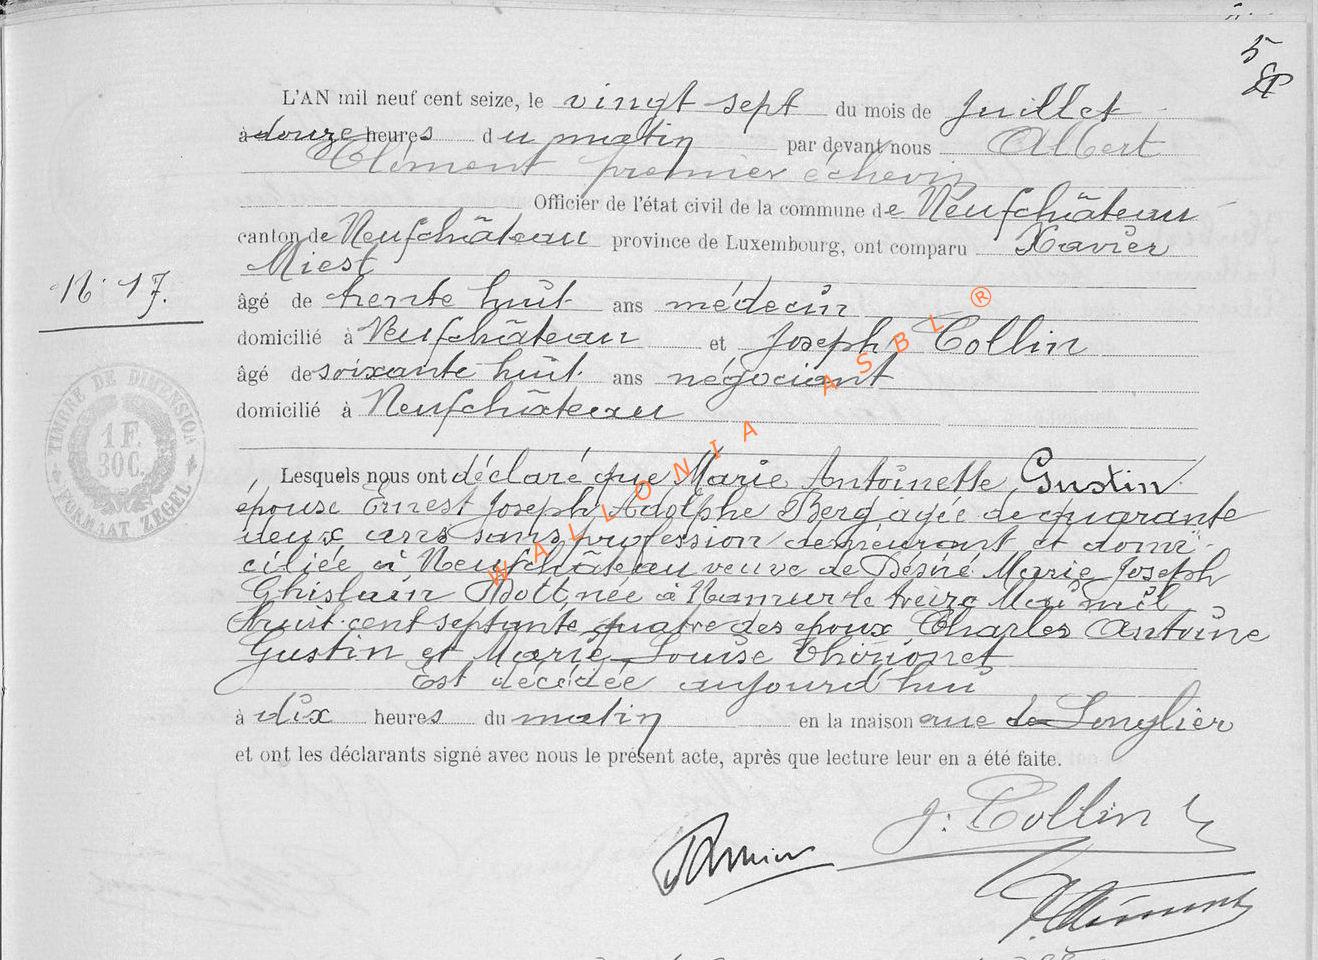 5
L'AN mil neuf cent seize, le vingt sept du mois de Juillet
à douze heures du matin par devant nous Albert
Clément premier échevin
Officier de l'état civil de la commune de Neufchâteau
canton de Neufchâteau province de Luxembourg, ont comparu Xavier
Miest
N° 17.
âgé de trente huit ans médecin
domicilié à Neufchâteau et Joseph Collin
âgé de soixante huit ans négociant
domicilié à Neufchâteau
TIMBRE DE DIMENSION
1 F.
30 C.
FORMAAT ZEGEL
Lesquels nous ont déclaré que Marie Antoinette Gustin
épouse Ernest Joseph Adolphe Berg agée de quarante
deux ans sans profession demeurant et domi-
ciliée à Neufchâteau veuve de Désiré Marie Joseph
Ghislain née à Namur le treize Mai mil
huit cent septante quatre des époux Charles Antoine
Gustin et Marie Louise
Est décédée aujourd'hui
à dix heures du matin en la maison rue de Longlier
et ont les déclarants signé avec nous le présent acte, après que lecture leur en a été faite.
J. Collin
A Clément
WALLONIA ASBL ®